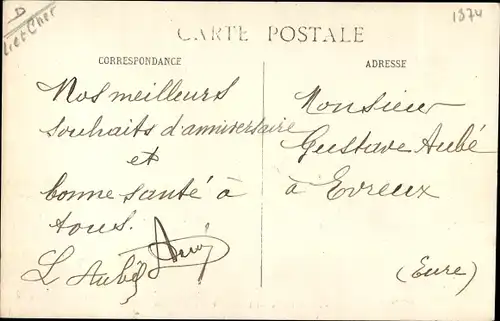 D
Loir et Cher
1374
CARTE POSTALE
CORRESPONDANCE
ADRESSE
Nos meilleurs
souhaits d'anniversaire
et
bonne santé à
tous.
L Aubé
Monsieur
Gustave Aubé
à Evreux
(Eure)